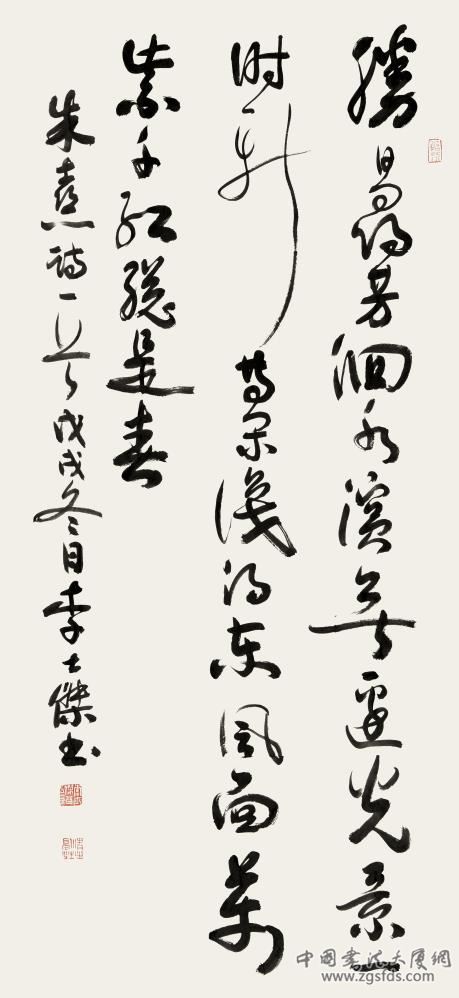 勝日尋芳泗水濱無邊光景一
时新等閑識得东風面萬
紫千紅總是春
朱熹詩一首戊戌冬日李士傑书
中國書法大厦網
www.zgsfds.com